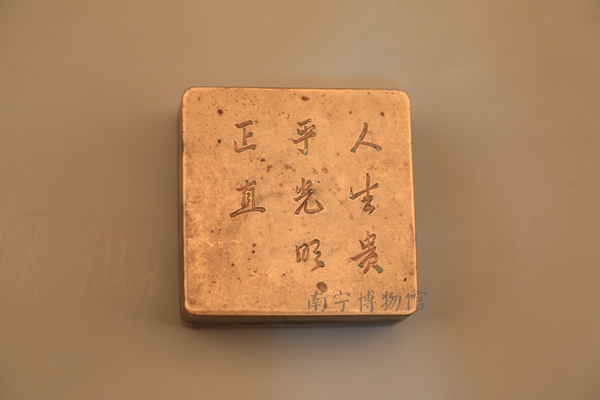 人生贵
乎光明
正直
南宁博物馆